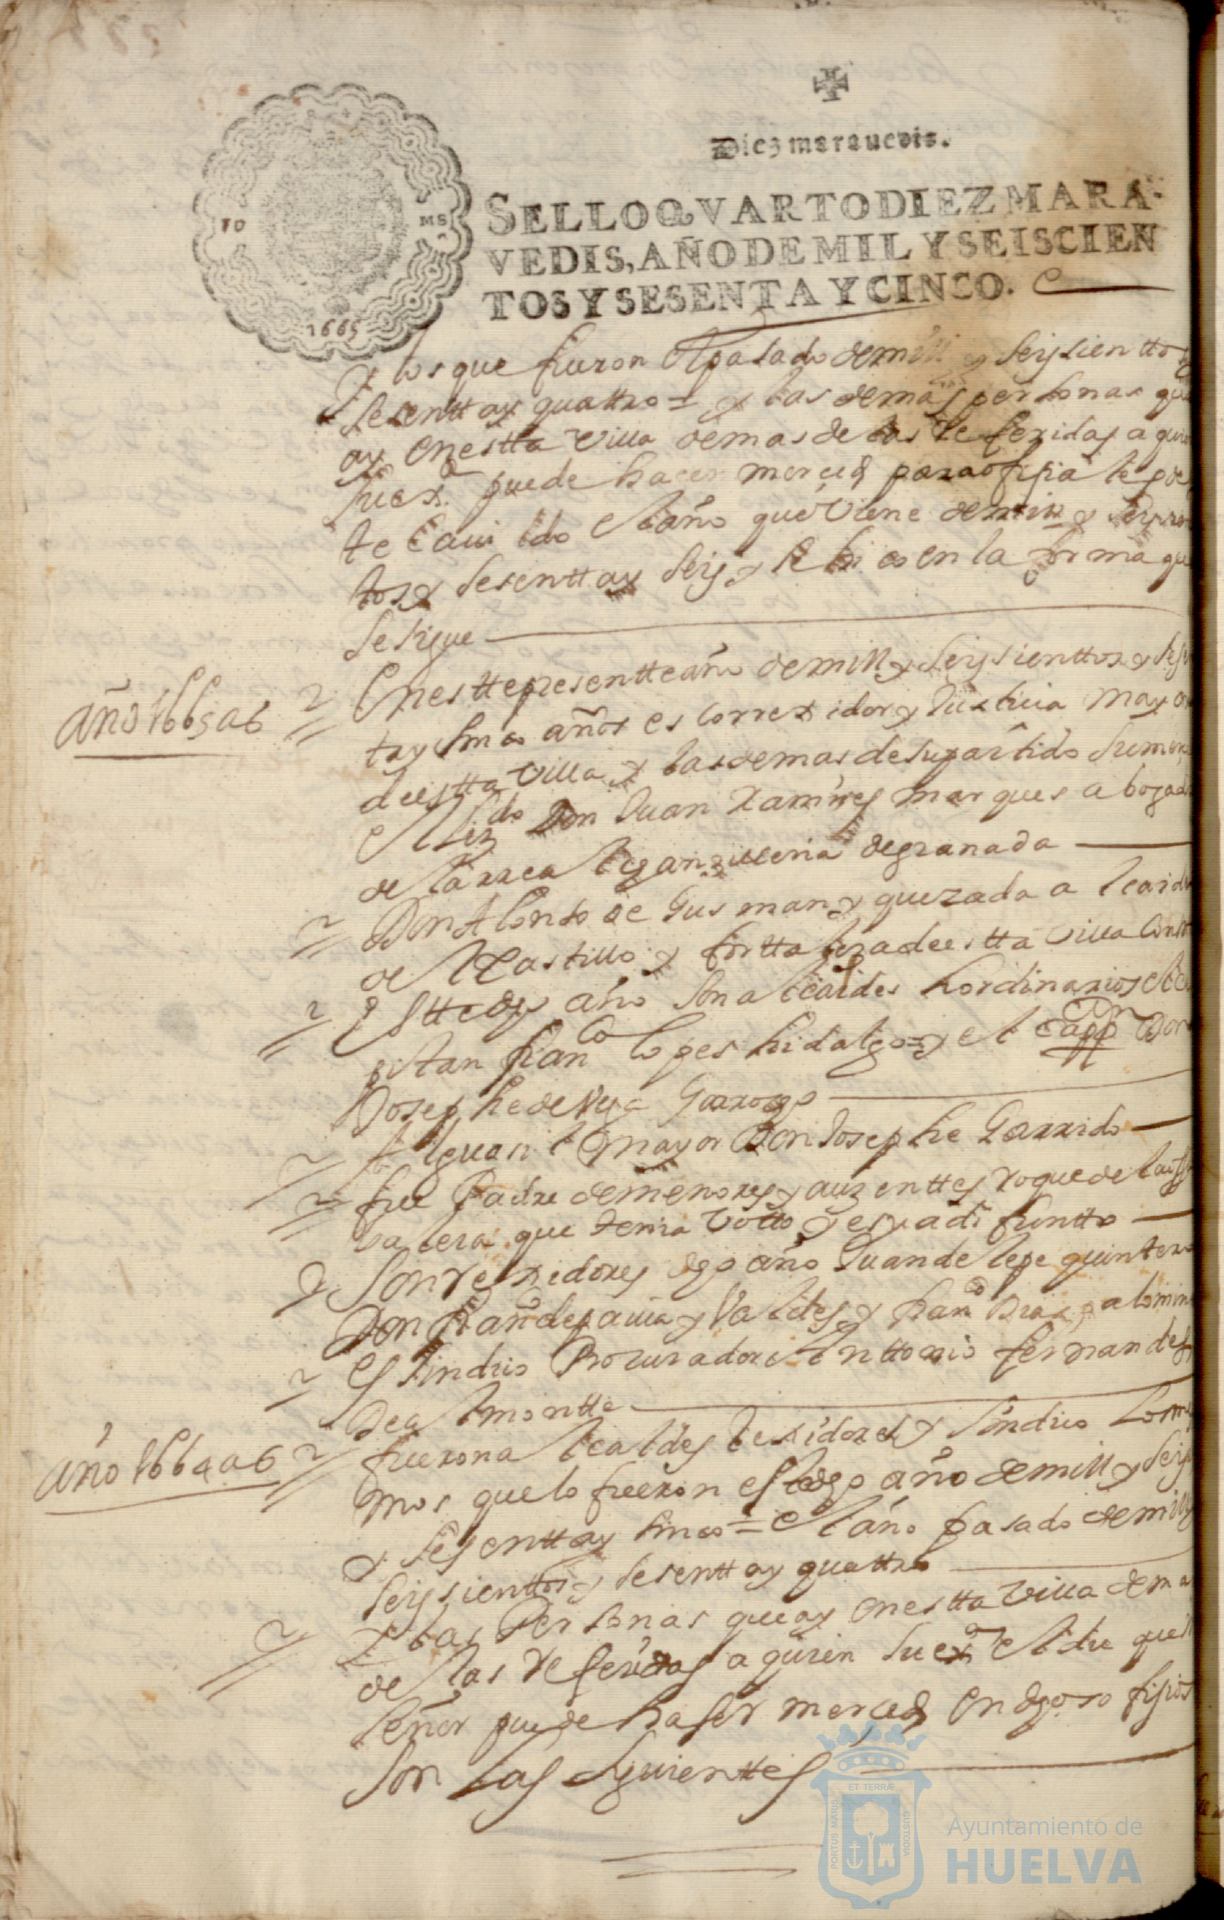 Diez maravedis.
SELLO QVARTO DIEZ MARA-
VEDIS, AÑO DE MIL Y SEISCIEN
TOS Y SESENTA Y CINCO.
TO
MS
1665
Y los que fueron el pasado de mill y seysientto
sesentta y quattro = y las demas personas que
ay en estta villa demas de las referidas a quien
su exa puede hacer merced para ofisia
te Cavildo el año que viene de mill y
tos y sesentta y seys y se hico en la forma que
se sigue
año 1665 a6
En estte presentte año de mill y seysienttos y
ta y sinco años es correxidor y Justicia mayor
de estta villa y las demas de su partido
el Lizdo Don Juan Ramires marques abogado
de la rreal chanzilleria de granada
Don Alonso de Gusman y quezada alcaide
del Castillo y forttaleza de estta villa
Y estte dho año son alcaldes hordinarios el Ca
pitan franco lopes hidalgo = y el Cappn Don
Josephe de Vega Garrocho
Alguasil mayor Don Josephe Garrido
fue Padre de menores y auzenttes roque de
que tenia votto y es ya difuntto
Y son rexidores dho año Juan de lepe quintero
Don Frando de pavia y Valdes y franco Dias palomin
Es sindico Procurador Anttonio fernandes
De almontte
año 1664 a6
fueron alcaldes rexidores y sindico Los mis
mos que lo fueron este dho año de mill y seys
y sesentta y sinco = el año pasado de mill y
seysienttos y sesentta y quattro
Y las Personas que ay en estta villa demas
de las referidas a quien su exa el duque mi
señor puede haser merced en dhos ofisios
son las siguienttes
PORTUS MARIS
ET TERRÆ
CUSTODIA
Ayuntamiento de
HUELVA